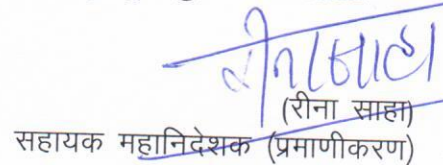 रीना साहा
(रीना साहा)
सहायक महानिदेशक (प्रमाणीकरण)